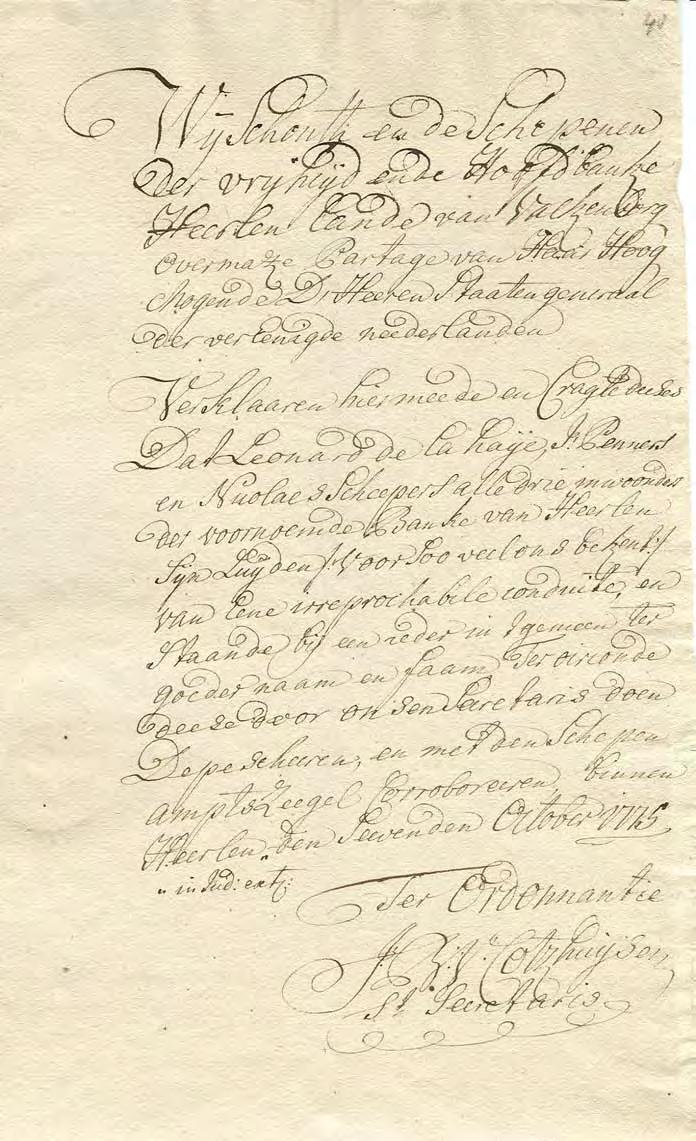 40
Wij Schouth en de Schepenen
der vrijheijd ende Hooffdbanke
Heerlen Lande van Valckenberg
overmaze Partage van Haar Hoog
Mogende D: Heeren Staaten generaal
der vereenigde neederlanden
Verklaaren hiermeede en Cragte deeses
Dat Leonard de la haije, Jn Penners
en Nicolaes Scheepers alle drie inwoonders
der voornoemde Banke van Heerlen
Sijn Luijden /: Voor Soo veel ons bekent :/
van eene irreprochabele conduite, en
Staande bij een ieder in 't gemeen ter
goeder naam en faam Ter oirconde
deese door onsen Secretaris doen
Depescheeren, en met den Schepen
ampts Zeegel Corroboreeren, binnen
Heerlen " den Seevenden October 1775
" in Jud: extr:
Ter Ordonnantie
Cotzhuijsen
St Secretaris